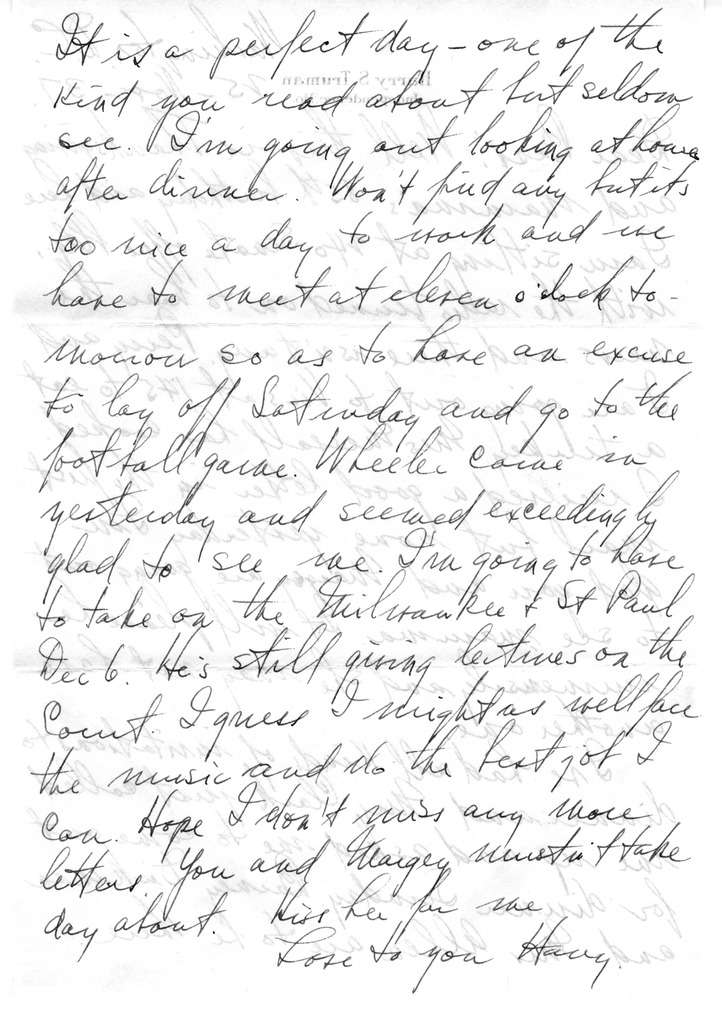 It is a perfect day - one of the
kind you read about but seldom
see. I'm going out looking at houses
after dinner. Won't find any but its
too nice a day to work and we
have to meet at eleven o'clock to-
morrow so as to have an excuse
to lay off Saturday and go to the
football game. Wheeler came in
yesterday and seemed exceedingly
glad to see me. I'm going to have
to take on the Milwaukee & St Paul
Dec 6. He's still giving lectures on the
Court. I guess I might as well face
the music and do the best job I
can. Hope I don't miss any more
letters. You and Margey mustn't take
day about. Kiss her for me
Love to you Harry.
Harry S. Truman